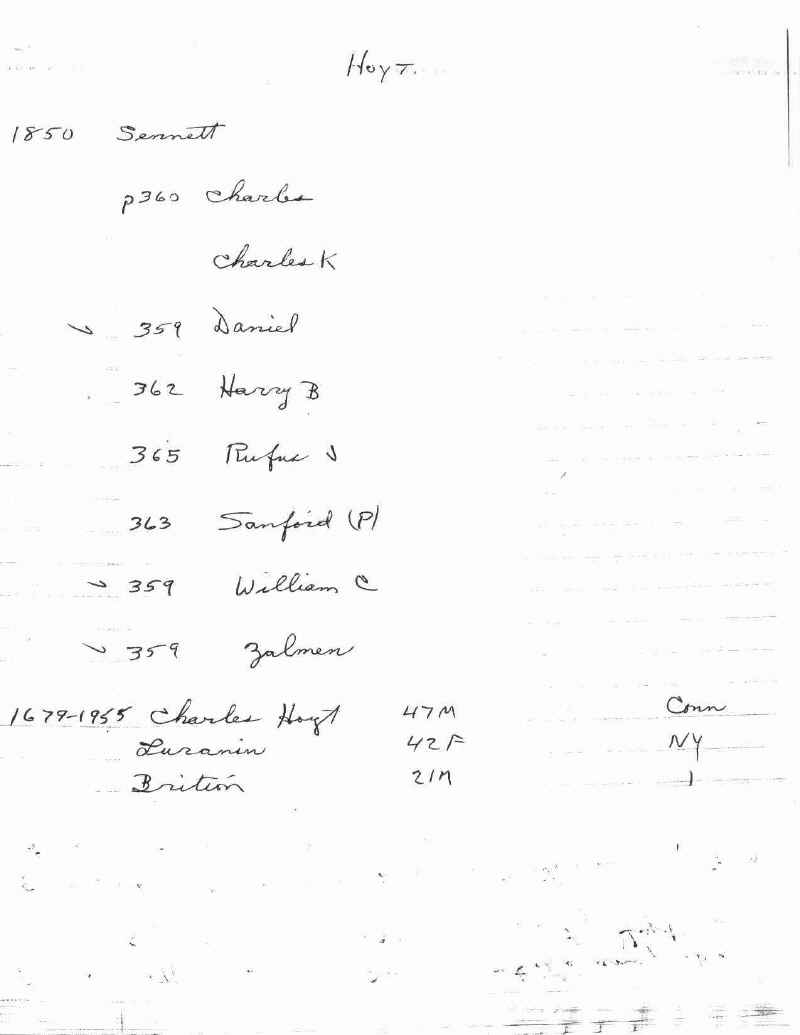 Hoyt.
1850 Sennett
p360 Charles
Charles K
359 Daniel
362 Harry B
365 Rufus J
363 Sanford (P)
359 William C
359 Zalmen
1679-1955 Charles Hoyt 47M Conn
Luranin 42F NY
Brition 21M